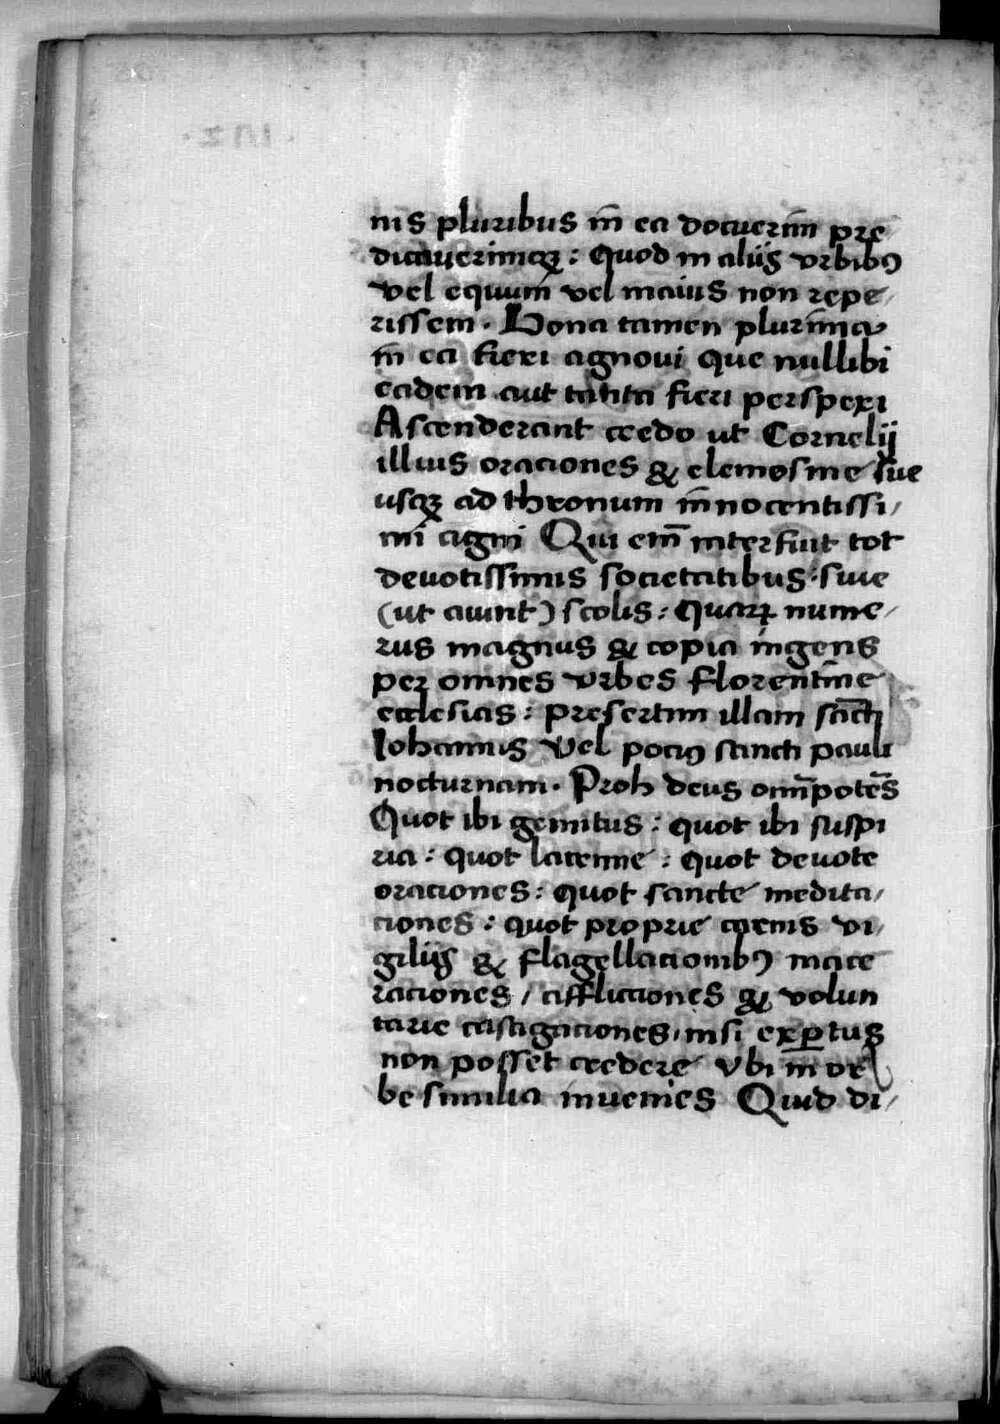 nis pluribus in̄ ea docuerim pre-
dicauerimqꝫ : Quod in aliis vrbibꝰ
vel equum vel maius non repe-
rissem . Bona tamen plurima
in̄ ea fieri agnoui que nullibi
eadem aut tanta fieri perspexi
Ascenderant credo ut Cornelij
illius oraciones & elemosine sue
usqꝫ ad thronum in̄nocentissi-
mi agni Qui em̄ interfuit tot
deuotissimis societatibus : siue
(ut aiunt) scolis : Quaꝝ nume-
rus magnus & copia ingens
per omnes vrbes florentine
ecclesias : presertim illam san̄cti
Iohannis vel pociꝰ sancti pauli
nocturnam . Proh deus om̄ipotēs
Quot ibi gemitus : quot ibi suspi
ria : quot lacrime : quot deuote
oraciones : quot sancte medita-
ciones : quot proprie carnis vi-
giliis & flagellacionibꝰ mace
raciones / afflictiones & volun
tarie castigaciones, nisi exꝑtus
non posset credere Vbi in̄ or
be similia inuenies Quid di-